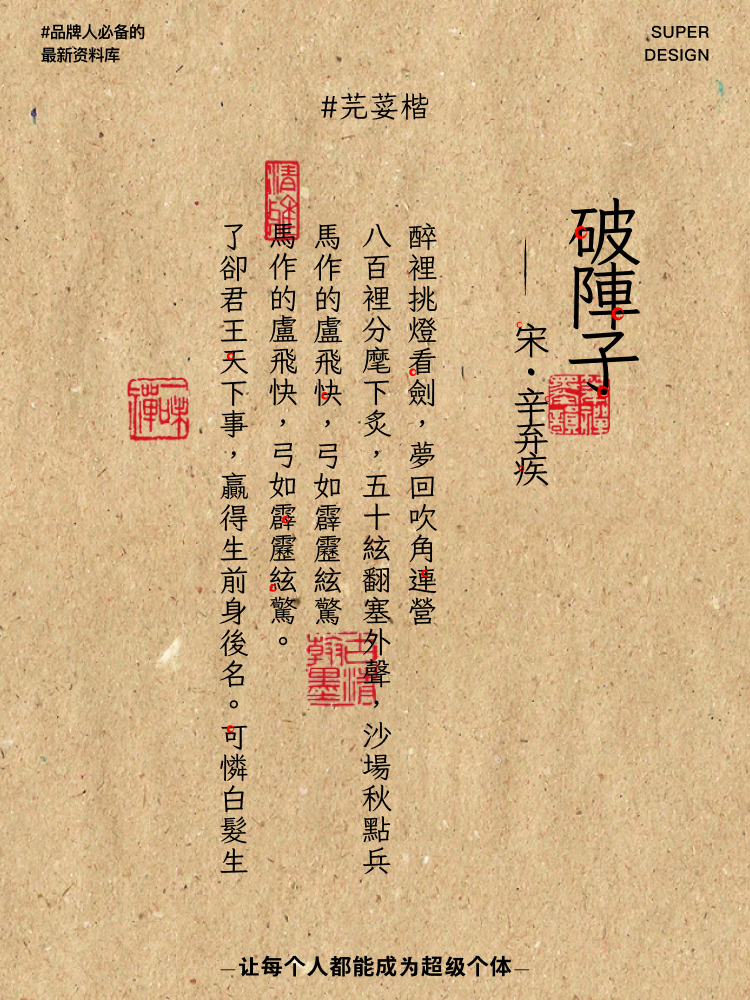 #品牌人必备的
最新资料库
SUPER
DESIGN
#芫荽楷
破陣子
—宋·辛弃疾
醉裡挑燈看劍，夢回吹角連營
八百裡分麾下炙，五十絃翻塞外聲，沙場秋點兵
馬作的盧飛快，弓如霹靂絃驚
馬作的盧飛快，弓如霹靂絃驚。
了卻君王天下事，贏得生前身後名。可憐白髮生
—让每个人都能成为超级个体—